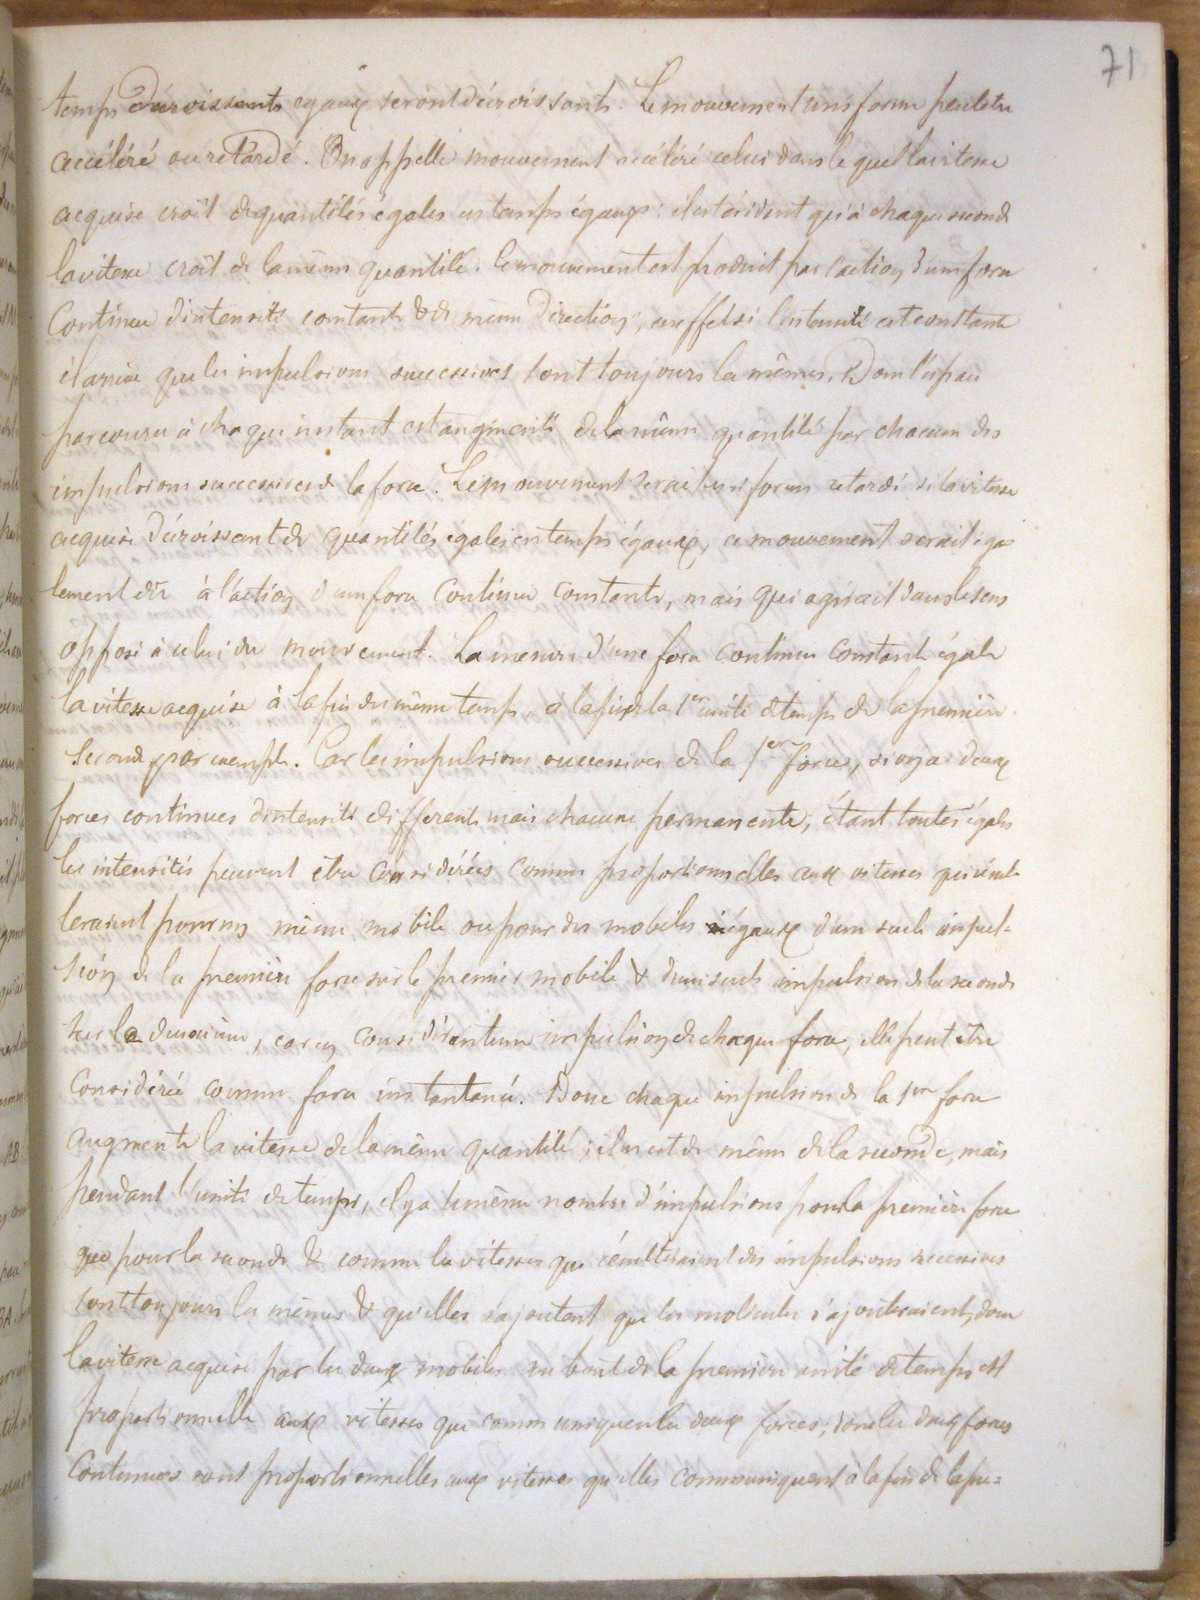 71
temps décroissants egaux seront décroissants. Le mouvement uniforme peut etre
accéléré ou retardé. On appelle mouvement accéléré celui dans le quel la vitesse
acquise croît de quantités égales en temps égaux: il est évident qu'à chaque seconde
la vitesse croît de la même quantité. le mouvement est produit par l'action d'une force
Continue d'intensité constante & de même direction, en effet si l'intensité est constante
il arrive que les impulsions successives sont toujours les mêmes. Donc l'espace
parcouru à chaque instant est augmenté de la même quantité par chacune des
impulsions successives de la force. Le mouvement serait uniforme retardé si la vitesse
acquise décroissant de quantités égales en temps égaux, ce mouvement serait éga-
lement dû à l'action d'une force Continue constante, mais qui agirait dans le sens
opposé à celui du mouvement. La mesure d'une force continue constante égale
la vitesse acquise à la fin du même temps, à la fin de la 1er unité de temps de la première
Seconde par exemple. Car les impulsions successives de la 1er force, si on a deux
forces continues d'intensité différente mais chacune permanente, étant toutes égales
les intensités peuvent être considérées comme proportionnelles aux vitesses qui résul-
teraient pour un même mobile ou pour des mobiles égaux d'une seule impul-
sion de la première force sur le premier mobile & d'une seule impulsion de la seconde
sur le deuxième, car en considérant une impulsion de chaque force, elle peut etre
Considérée comme force instantanée. Donc chaque impulsion de la 1ere force
augmente la vitesse de la même quantité; il en est de même de la seconde, mais
pendant l'unité de temps, il y a le même nombre d'impulsions pour la première force
que pour la seconde & comme les vitesses qui résulteraient des impulsions successives
sont toujours les mêmes & qu'elles s'ajoutent que les molécules s'ajouteraient, donc
la vitesse acquise par les deux mobiles au bout de la première unité de temps est
proportionnelle aux vitesses que communiquent les deux forces; donc les deux forces
Continues sont proportionnelles aux vitesses qu'elles communiquent à la fin de la pre=